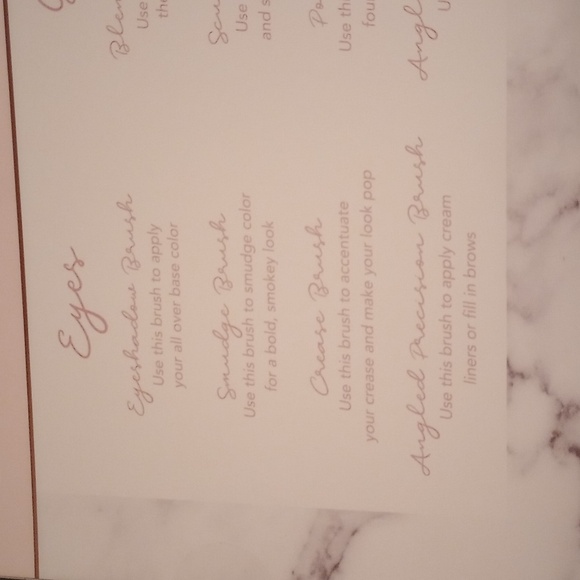 Eyes
Eyeshadow Brush
Use this brush to apply
your all over base color
Smudge Brush
Use this brush to smudge color
for a bold, smokey look
Crease Brush
Use this brush to accentuate
your crease and make your look pop
Angled Precision Brush
Use this brush to apply cream
liners or fill in brows
Use
Use
and
Use